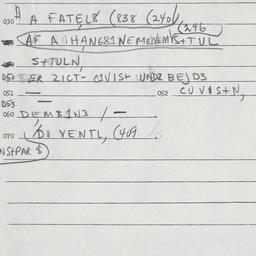 030 A FATEL8 (838 (240), (296
AF A HANG81NEMEDEM1S+TUL
S+TULN,
050 ER 21CT- C1VIS+ UND2 BEJD3
051 — 052 CUVIS+N,
053 —
060 DEMB1N3 / —
070 DI VENTL, (409
NS+PAR $